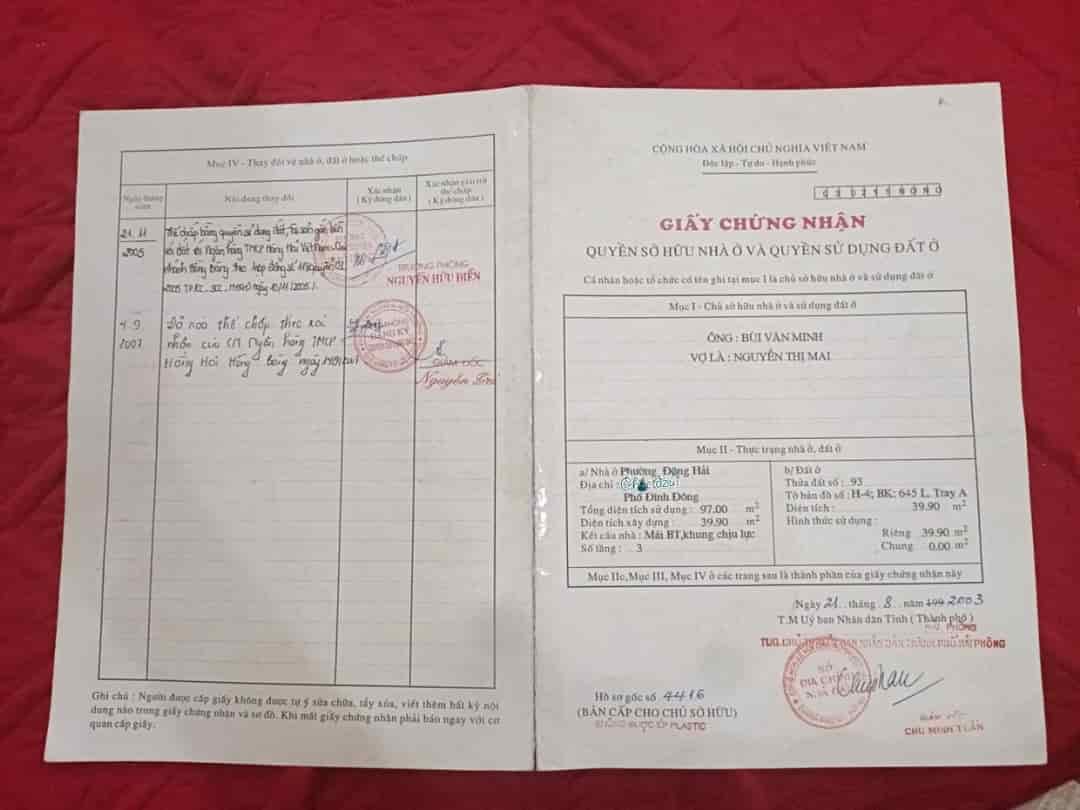 Mục IV - Thay đổi về nhà ở, đất ở hoặc thế chấp
Ngày tháng năm
Nội dung thay đổi
Xác nhận
(Ký đóng dấu)
Xác nhận giải trừ thế chấp
(Ký đóng dấu)
21.11
2005
Thế chấp bằng quyền sử dụng đất, tài sản gắn liền
với đất với Ngân hàng TMCP Hàng Hải Việt Nam
TRƯỞNG PHÒNG
NGUYỄN HỮU BIỂN
4.9
2007
Đã xóa thế chấp theo xác
nhận của CN Ngân hàng TMCP
Hàng Hải Hồng Bàng ngày
ĐĂNG KÝ
GIÁM ĐỐC
Nguyễn
Ghi chú : Người được cấp giấy không được tự ý sửa chữa, tẩy xóa, viết thêm bất kỳ nội
dung nào trong giấy chứng nhận và sơ đồ. Khi mất giấy chứng nhận phải báo ngay với cơ
quan cấp giấy.
CỘNG HÒA XÃ HỘI CHỦ NGHĨA VIỆT NAM
Độc lập - Tự do - Hạnh phúc
GIẤY CHỨNG NHẬN
QUYỀN SỞ HỮU NHÀ Ở VÀ QUYỀN SỬ DỤNG ĐẤT Ở
Cá nhân hoặc tổ chức có tên ghi tại mục I là chủ sở hữu nhà ở và sử dụng đất ở
Mục I - Chủ sở hữu nhà ở và sử dụng đất ở
ÔNG : BÙI VĂN MINH
VỢ LÀ : NGUYỄN THỊ MAI
Mục II - Thực trạng nhà ở, đất ở
a/ Nhà ở Phường Đặng Hải
Địa chỉ :
Phố Đình Đông
Tổng diện tích sử dụng : 97.00 m²
Diện tích xây dựng : 39.90 m²
Kết cấu nhà : Mái BT,khung chịu lực
Số tầng : 3
b/ Đất ở
Thửa đất số : 93
Tờ bản đồ số : H-4; BK: 645 L. Tray A
Diện tích : 39.90 m²
Hình thức sử dụng :
Riêng 39.90 m²
Chung 0.00 m²
Mục IIc,Mục III, Mục IV ở các trang sau là thành phần của giấy chứng nhận này
Ngày 21 tháng 8 năm 199 2003
T.M Uỷ ban Nhân dân Tỉnh ( Thành phố )
HẢI PHÒNG
TUQ. CHỦ TỊCH ỦY BAN NHÂN DÂN THÀNH PHỐ HẢI PHÒNG
SỞ
ĐỊA CHÍNH
NHÀ ĐẤT
Hồ sơ gốc số 4416
(BẢN CẤP CHO CHỦ SỞ HỮU)
KHÔNG ĐƯỢC ÉP PLASTIC
GIÁM ĐỐC
CHU MINH TUẤN